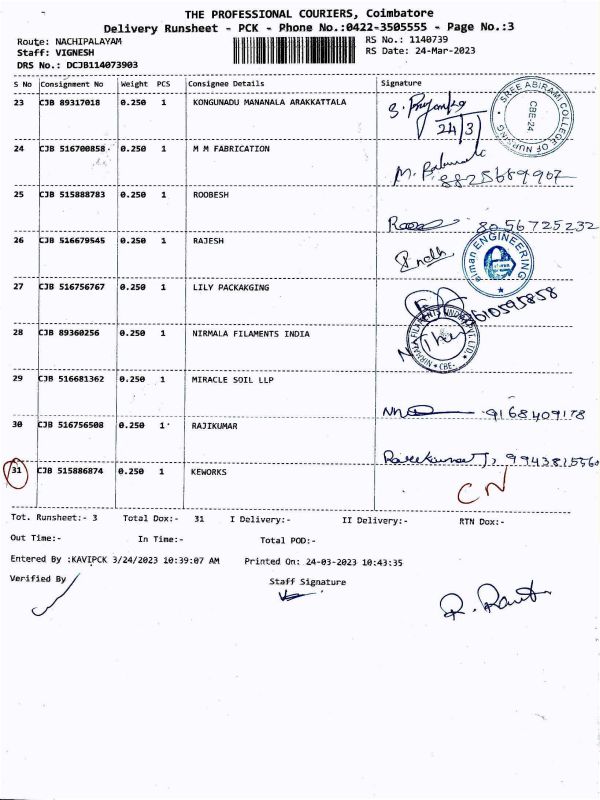 THE PROFESSIONAL COURIERS, Coimbatore
Delivery Runsheet - PCK - Phone No.:0422-3505555 - Page No.:3
Route: NACHIPALAYAM RS No.: 1140739
Staff: VIGNESH RS Date: 24-Mar-2023
DRS No.: DCJB114073903
S No Consignment No Weight PCS Consignee Details Signature
23 CJB 89317018 0.250 1 KONGUNADU MANANALA ARAKKATTALA
SREE ABIRAMI COLLEGE OF NURSING CBE-24
24/3
24 CJB 516700858 0.250 1 M M FABRICATION
8825689907
25 CJB 515888783 0.250 1 ROOBESH
8056725232
26 CJB 516679545 0.250 1 RAJESH
ENGINEERING
27 CJB 516756767 0.250 1 LILY PACKAKGING
9610595858
28 CJB 89360256 0.250 1 NIRMALA FILAMENTS INDIA
NIRMALA FILAMENTS INDIA PVT. LTD. CBE-
29 CJB 516681362 0.250 1 MIRACLE SOIL LLP
9168409178
30 CJB 516756508 0.250 1 RAJIKUMAR
9943815560
31 CJB 515886874 0.250 1 KEWORKS
CN
Tot. Runsheet:- 3 Total Dox:- 31 I Delivery:- II Delivery:- RTN Dox:-
Out Time:- In Time:- Total POD:-
Entered By :KAVIPCK 3/24/2023 10:39:07 AM Printed On: 24-03-2023 10:43:35
Verified By Staff Signature